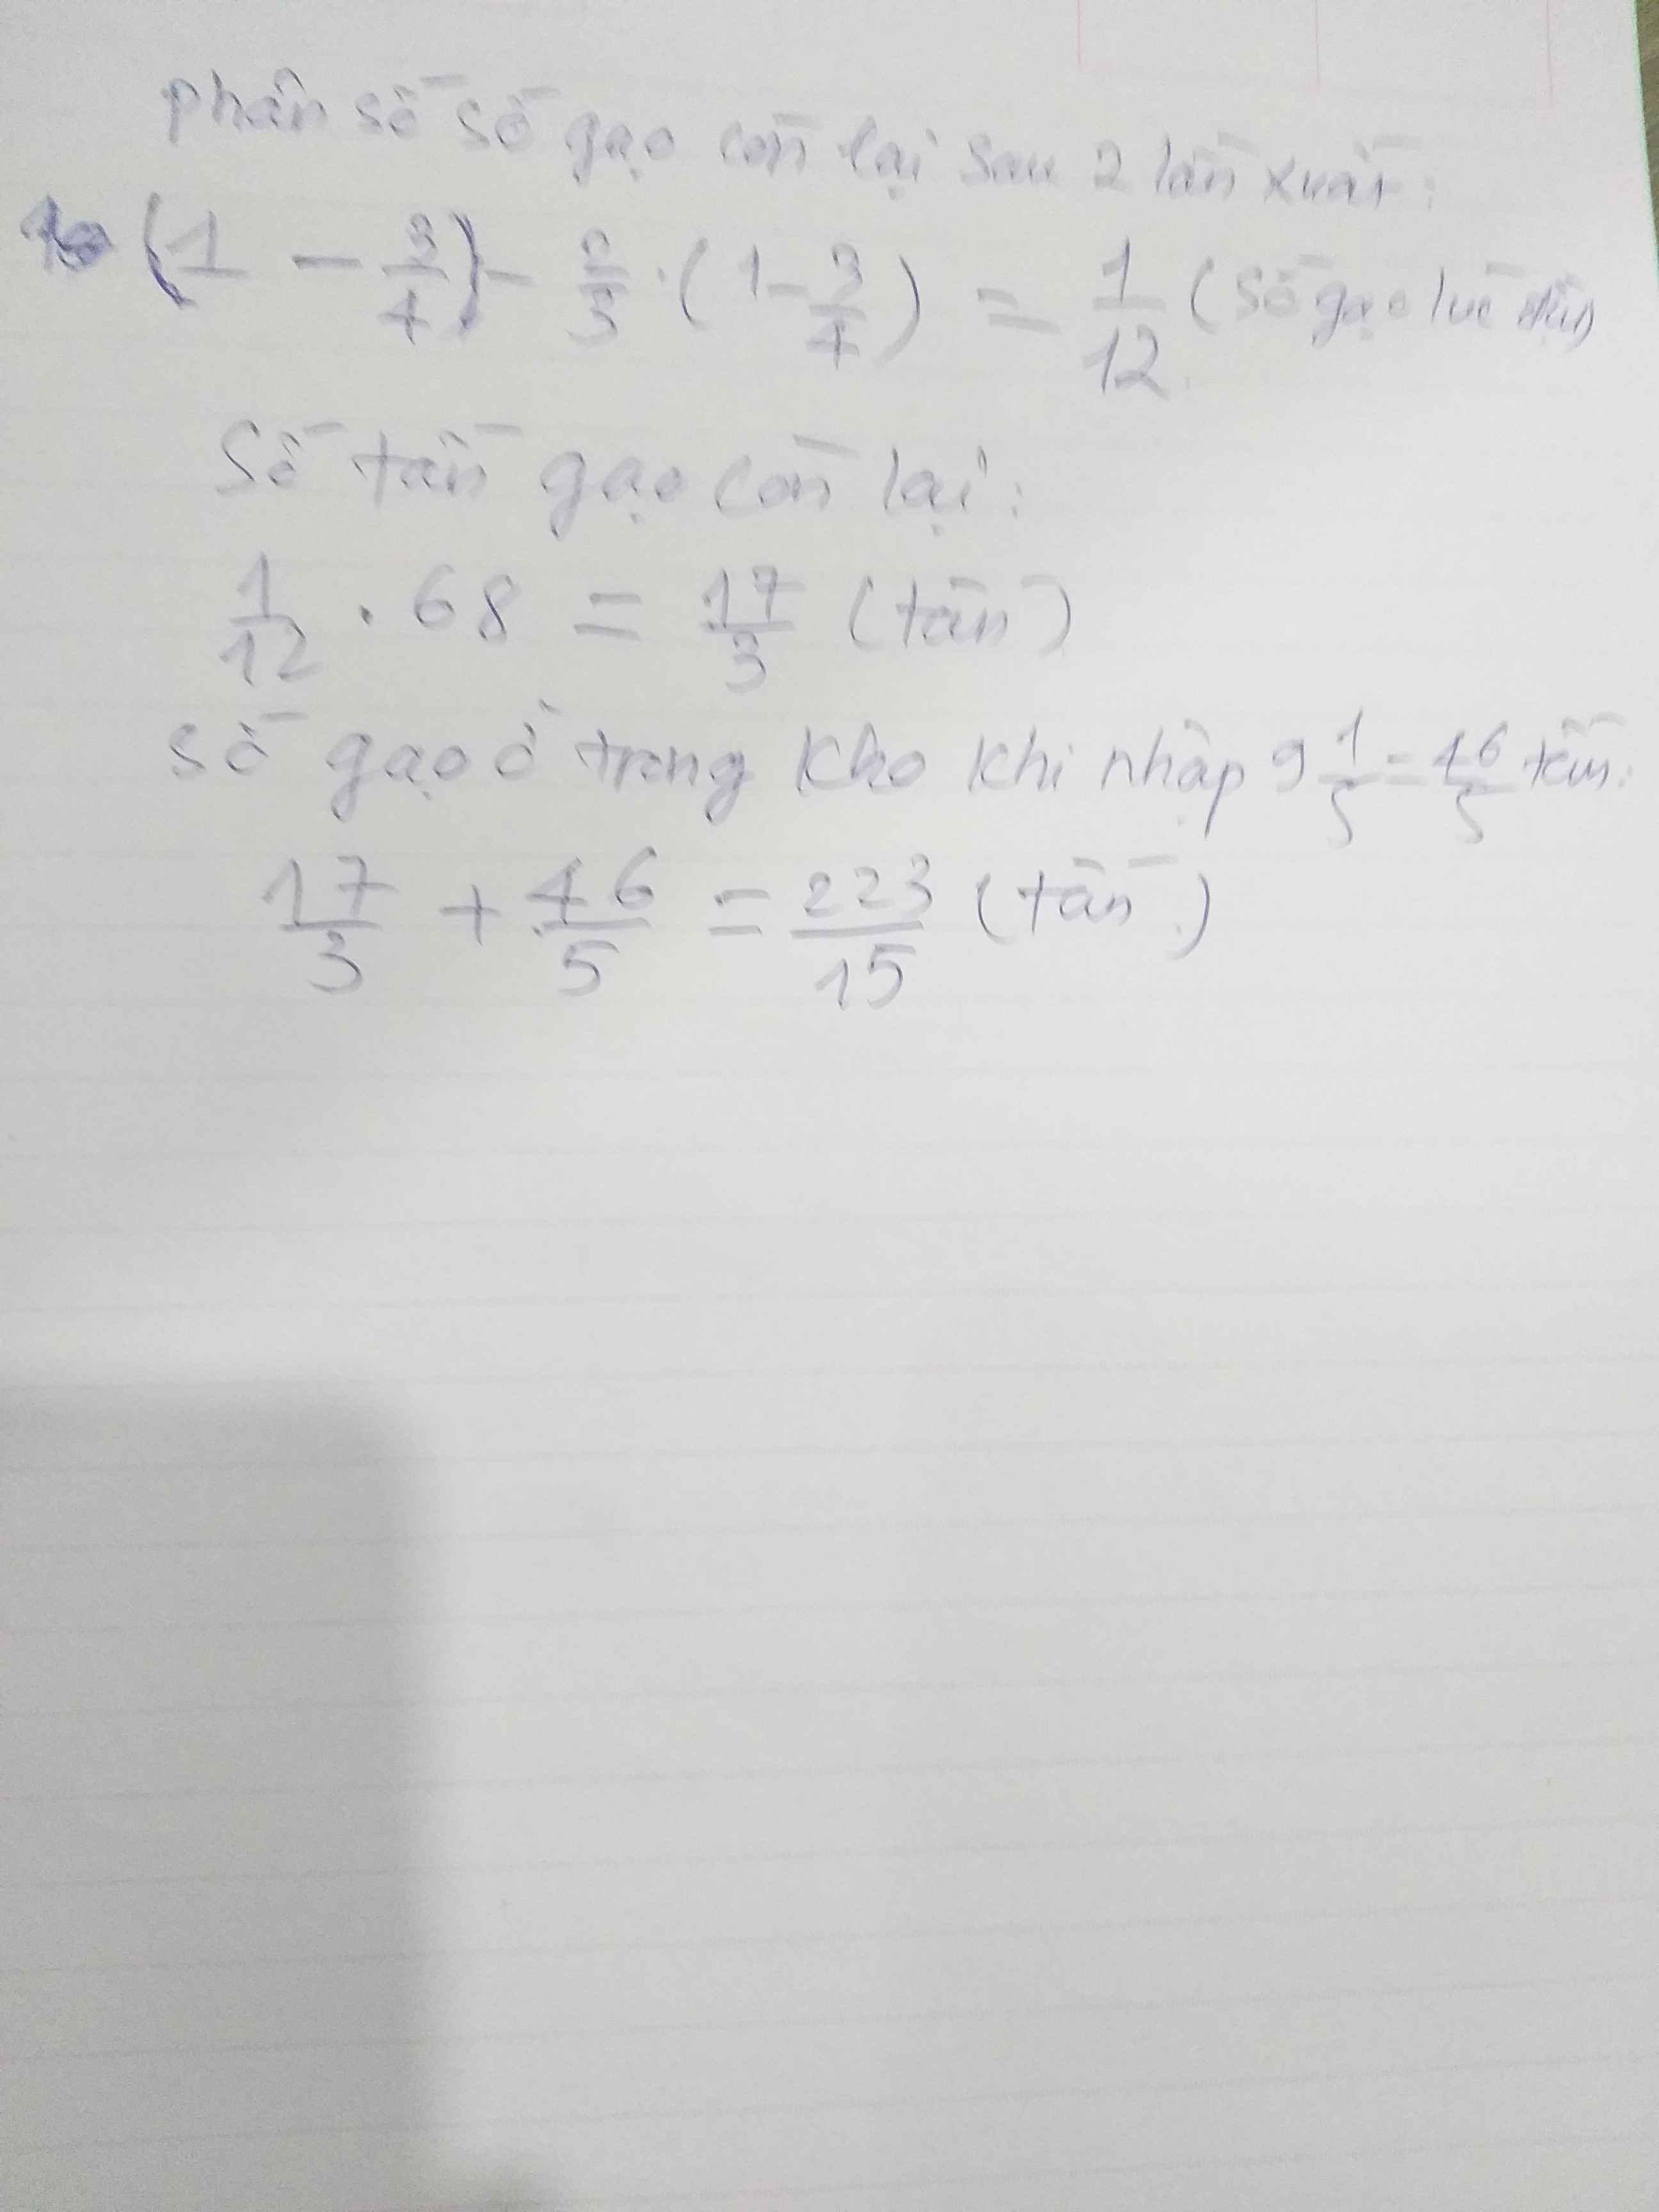 phân số số gạo còn lại sau 2 lần xuất:
(1 - 3/4) - 2/3 . (1 - 3/4) = 1/12 (số gạo lúc đầu)
Số tấn gạo còn lại:
1/12 . 68 = 17/3 (tấn)
số gạo ở trong kho khi nhập 9 1/5 = 46/5 tấn:
17/3 + 46/5 = 223/15 (tấn)